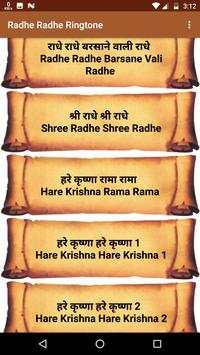 3:12
Radhe Radhe Ringtone
राधे राधे बरसाने वाली राधे
Radhe Radhe Barsane Vali
Radhe
श्री राधे श्री राधे
Shree Radhe Shree Radhe
हरे कृष्णा रामा रामा
Hare Krishna Rama Rama
हरे कृष्णा हरे कृष्णा 1
Hare Krishna Hare Krishna 1
हरे कृष्णा हरे कृष्णा 2
Hare Krishna Hare Krishna 2